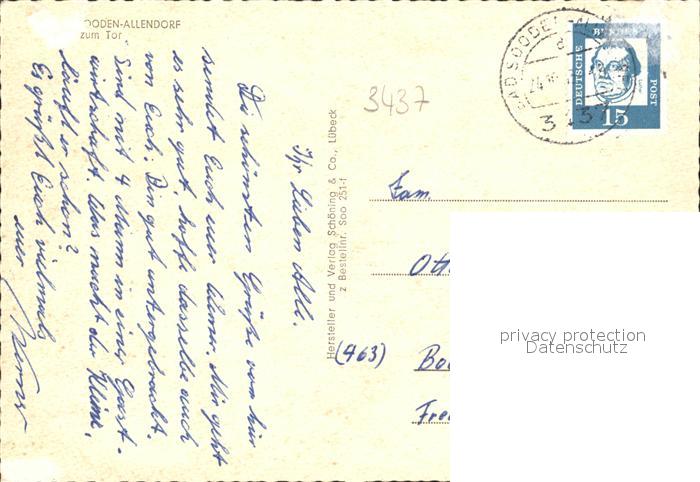 OODEN-ALLENDORF
zum Tor
Ihr Lieben Alle.
Die schönsten Grüße von hier
sendet Euch euer Werner. Mir geht
es sehr gut, hoffe dasselbe auch
von Euch. Bin gut untergebracht.
Sind mit 4 Mann in einer Gast-
wirtschaft. Was macht der Kleine,
läuft er schon?
Es grüßt Euch vielmals
euer
Werner
Hersteller und Verlag Schöning & Co., Lübeck
z Bestellnr. Soo 251-f
3437
BAD SOODEN-
3437
DEUTSCHE
BUNDES
POST
15
Fam.
Ott
(463) Bo
Fre
privacy protection
Datenschutz